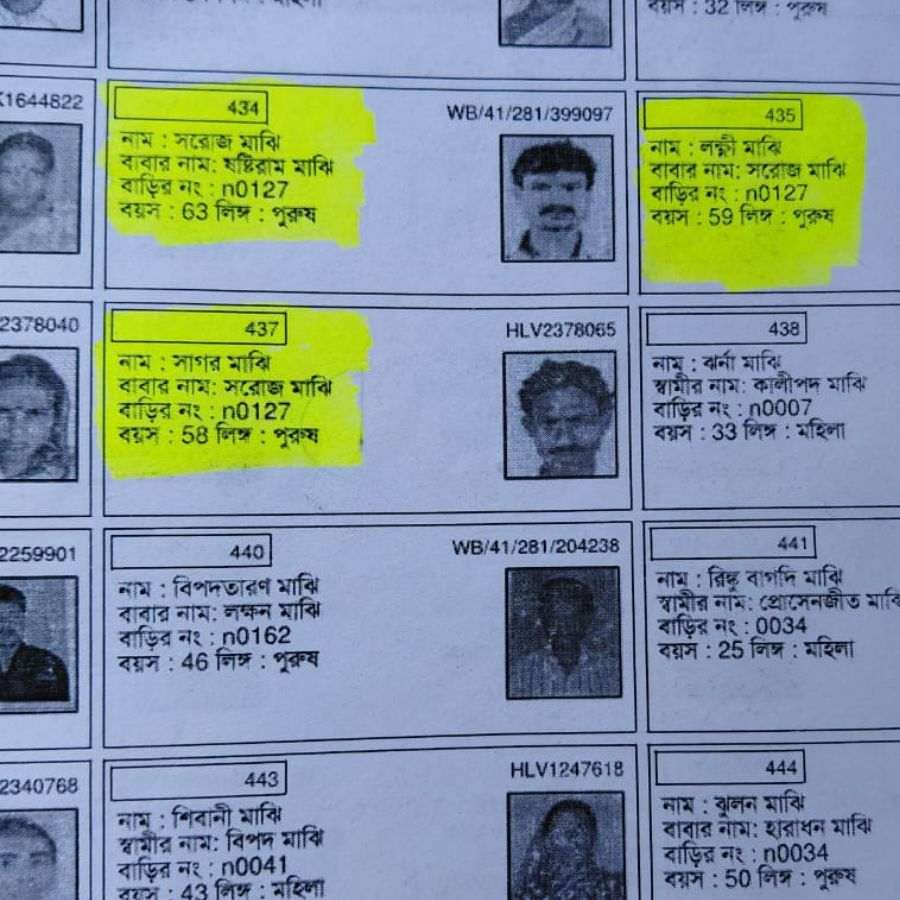 বয়স : 32 লিঙ্গ : পুরুষ
K1644822
434
WB/41/281/399097
নাম : সরোজ মাঝি
বাবার নাম: ষষ্টিরাম মাঝি
বাড়ির নং : n0127
বয়স : 63 লিঙ্গ : পুরুষ
435
নাম : লক্ষী মাঝি
বাবার নাম: সরোজ মাঝি
বাড়ির নং : n0127
বয়স : 59 লিঙ্গ : পুরুষ
2378040
437
HLV2378065
নাম : সাগর মাঝি
বাবার নাম: সরোজ মাঝি
বাড়ির নং : n0127
বয়স : 58 লিঙ্গ : পুরুষ
438
নাম : ঝর্না মাঝি
স্বামীর নাম: কালীপদ মাঝি
বাড়ির নং : n0007
বয়স : 33 লিঙ্গ : মহিলা
2259901
440
WB/41/281/204238
নাম : বিপদতারণ মাঝি
বাবার নাম: লক্ষন মাঝি
বাড়ির নং : n0162
বয়স : 46 লিঙ্গ : পুরুষ
441
নাম : রিঙ্কু বাগদি মাঝি
স্বামীর নাম: প্রোসেনজীত মাঝি
বাড়ির নং : 0034
বয়স : 25 লিঙ্গ : মহিলা
2340768
443
HLV1247618
নাম : শিবানী মাঝি
স্বামীর নাম: বিপদ মাঝি
বাড়ির নং : n0041
বয়স : 43 লিঙ্গ : মহিলা
444
নাম : ঝুলন মাঝি
বাবার নাম: হারাধন মাঝি
বাড়ির নং : n0034
বয়স : 50 লিঙ্গ : পুরুষ